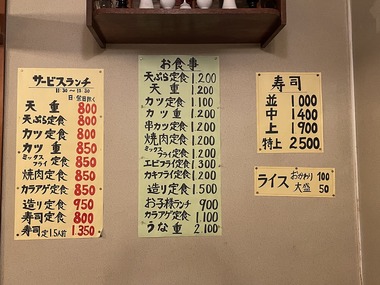 サービスランチ
11:30〜13:30
日・祭日除く
天重 800
天ぷら定食 800
カツ定食 800
カツ重 850
ミックスフライ定食 850
焼肉定食 850
カラアゲ定食 850
造り定食 950
寿司定食 800
寿司定1.5人前 1.350
お食事
天ぷら定食 1.200
天重 1.200
カツ定食 1.100
カツ重 1.200
串カツ定食 1.200
焼肉定食 1.200
ミックスフライ定食 1.200
エビフライ定食 1.300
カキフライ定食 1.200
造り定食 1.500
お子様ランチ 900
カラアゲ定食 1.100
うな重 2.100
寿司
並 1000
中 1400
上 1900
特上 2500
ライス おかわり 100
大盛 50